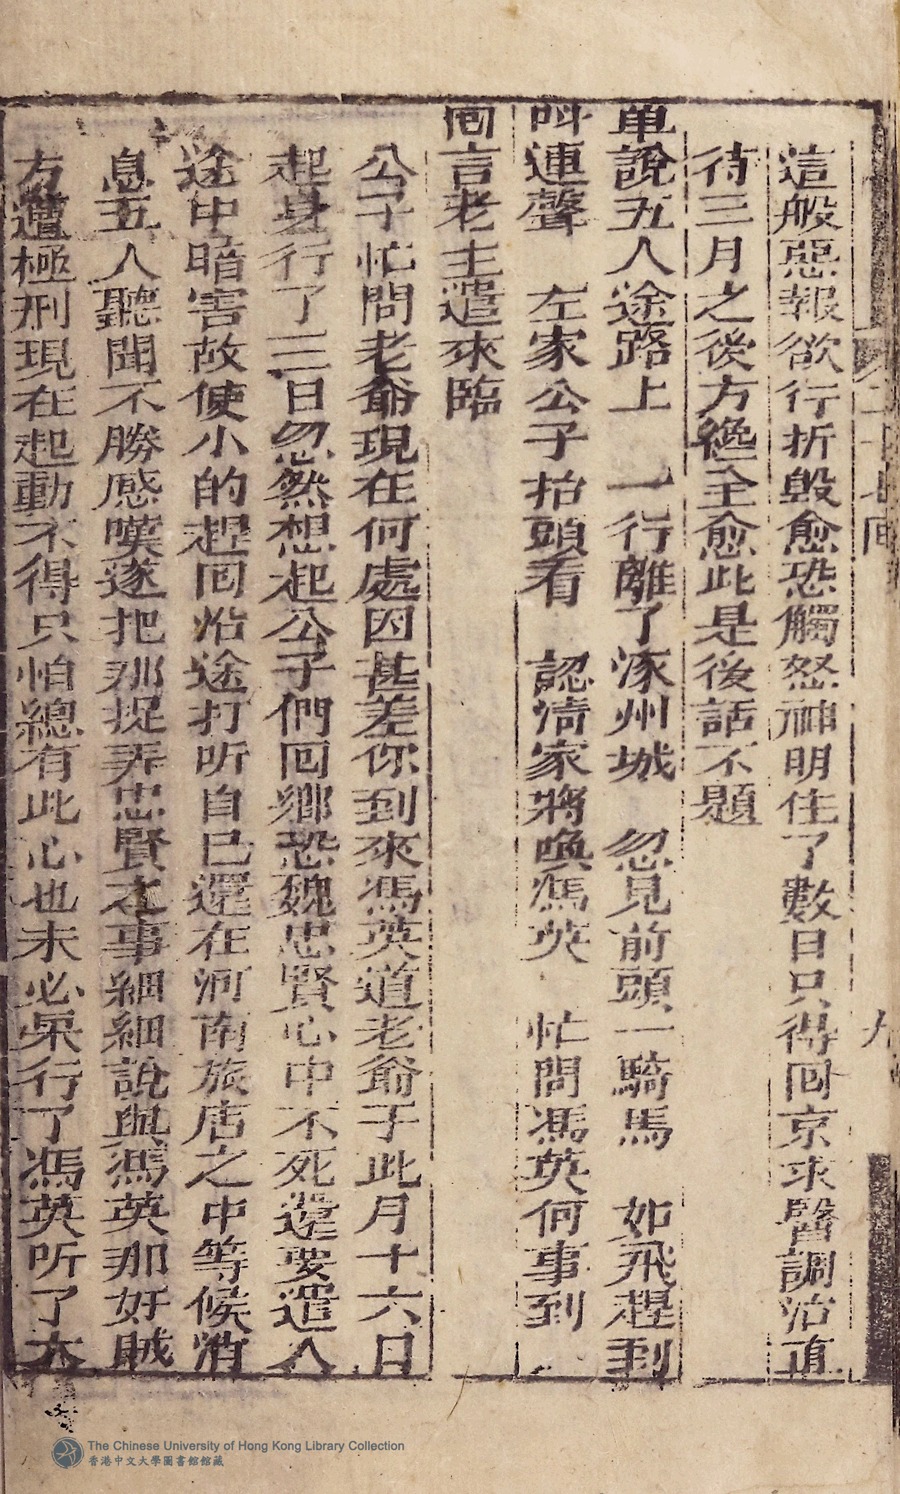 這般惡報欲行折毀愈恐觸怒神明住了數日只得囘京求醫調治直
待三月之後方纔全愈此是後話不題
單說五人途路上　一行離了涿州城　忽見前頭一騎馬　如飛趕到
叫連聲　左家公子抬頭看　認清家將喚馮英　忙問馮英何事到
囘言老主遣來臨
公子忙問老爺現在何處因甚差你到來馮英道老爺于此月十六日
起身行了三日忽然想起公子們囘鄉恐魏忠賢心中不死還要遣人
途中暗害故使小的趕囘沿途打听自已還在河南旅店之中等候消
息五人聽聞不勝感嘆遂把那捉弄忠賢之事細細說與馮英那奸賊
方遭極刑現在起動不得只怕總有此心也未必果行了馮英听了大
二十七囘
九
The Chinese University of Hong Kong Library Collection
香港中文大學圖書館館藏